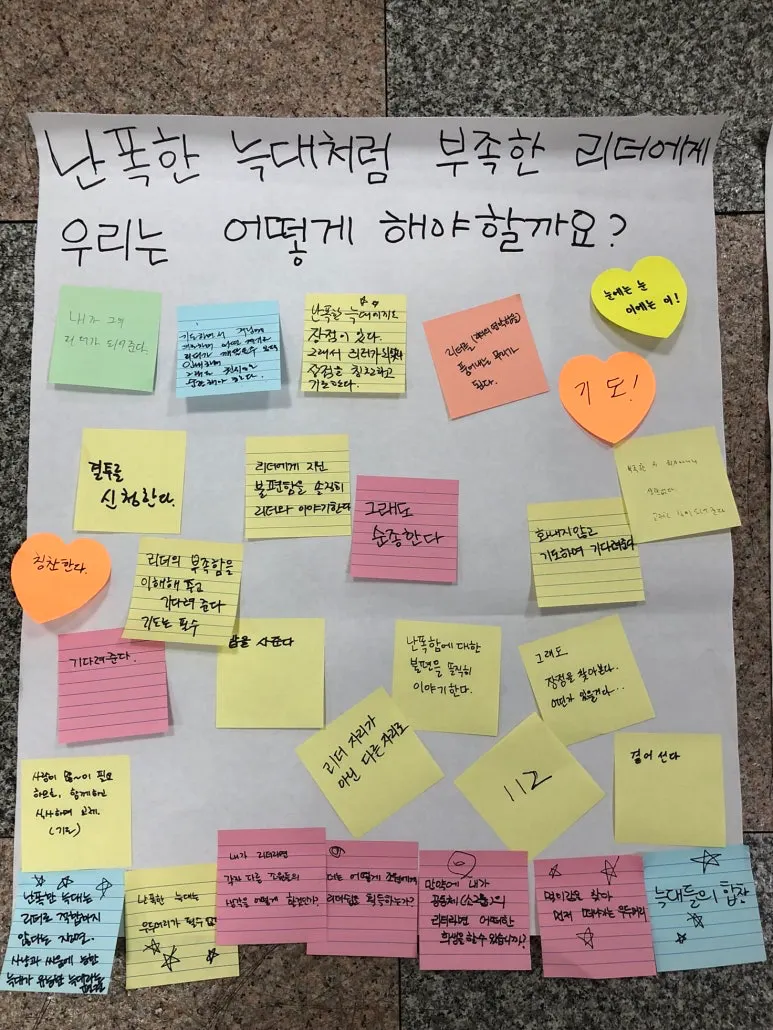 난폭한 늑대처럼 부족한 리더에게
우리는 어떻게 해야할까요?
눈에는 눈
이에는 이!
내가 그
리더가 되어준다.
난폭한 늑대이지만
장점이 있다.
그래서 리더가 되었다
장점을 칭찬하고
기도한다.
리더를
품어내는 무리가
된다.
기도!
결투를
신청한다.
리더에게 지닌
불편함을 솔직히
리더와 이야기한다
그래도
순종한다
화내지않고
기도하며 기다려준다
칭찬한다.
리더의 부족함을
이해해 주고
기다려 준다
기도는 필수
기다려준다.
밥을 사준다
난폭함에 대한
불편을 솔직히
이야기한다.
그래도
장점을 찾아본다.
어딘가 있을거다...
리더 자리가
아닌 다른 자리로
112
걸어 선다
사랑이 많~이 필요
하므로, 함께하고
식사하며 교제.
(기도)
난폭한 늑대는
리더로 적합하지
않다는 지적.
사냥과 싸움에 능한
늑대가 유능한 늑대라는
난폭한 늑대는
우두머리가 필수
내가 리더라면
각자 다른 조원들의
생각을 어떻게 할것인가?
어떻게
리더십을 획득하는가?
만약에 내가
공동체(소그룹)의
리더라면 어떠한
희생을 할수 있습니까?
먹이감을 찾아
먼저 떠나가는 우두머리
늑대들의 합창